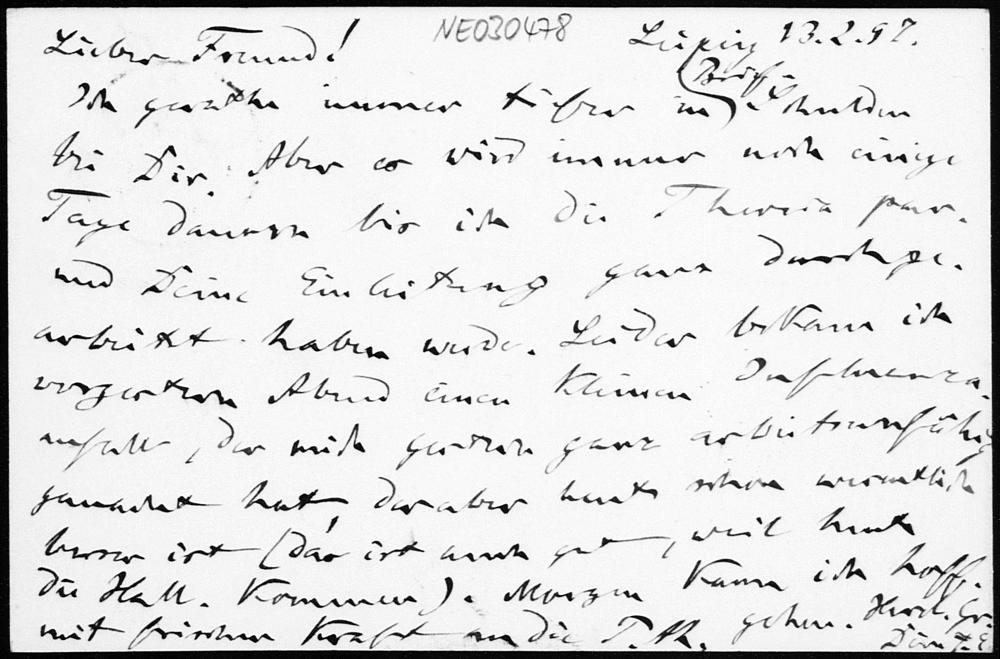 NE030478
Lieber Freund! Leipzig 13.2.97.
Ich gerathe immer tiefer in (Brief-) Schulden
bei Dir. Aber es wird immer noch einige
Tage dauern bis ich die Theoria par.
und Deine Einleitung ganz durchge-
arbeitet haben werde. Leider bekam ich
vorgestern Abend einen kleinen Influenza-
anfall, der mich gestern ganz arbeitsunfähig
gemacht hat, der aber heute schon wesentlich
besser ist (das ist auch gut, weil heute
die Hall. kommen). Morgen kann ich hoff.
mit frischer Kraft an die T. th. gehen. Herzl. Gr.
Dein F. E.